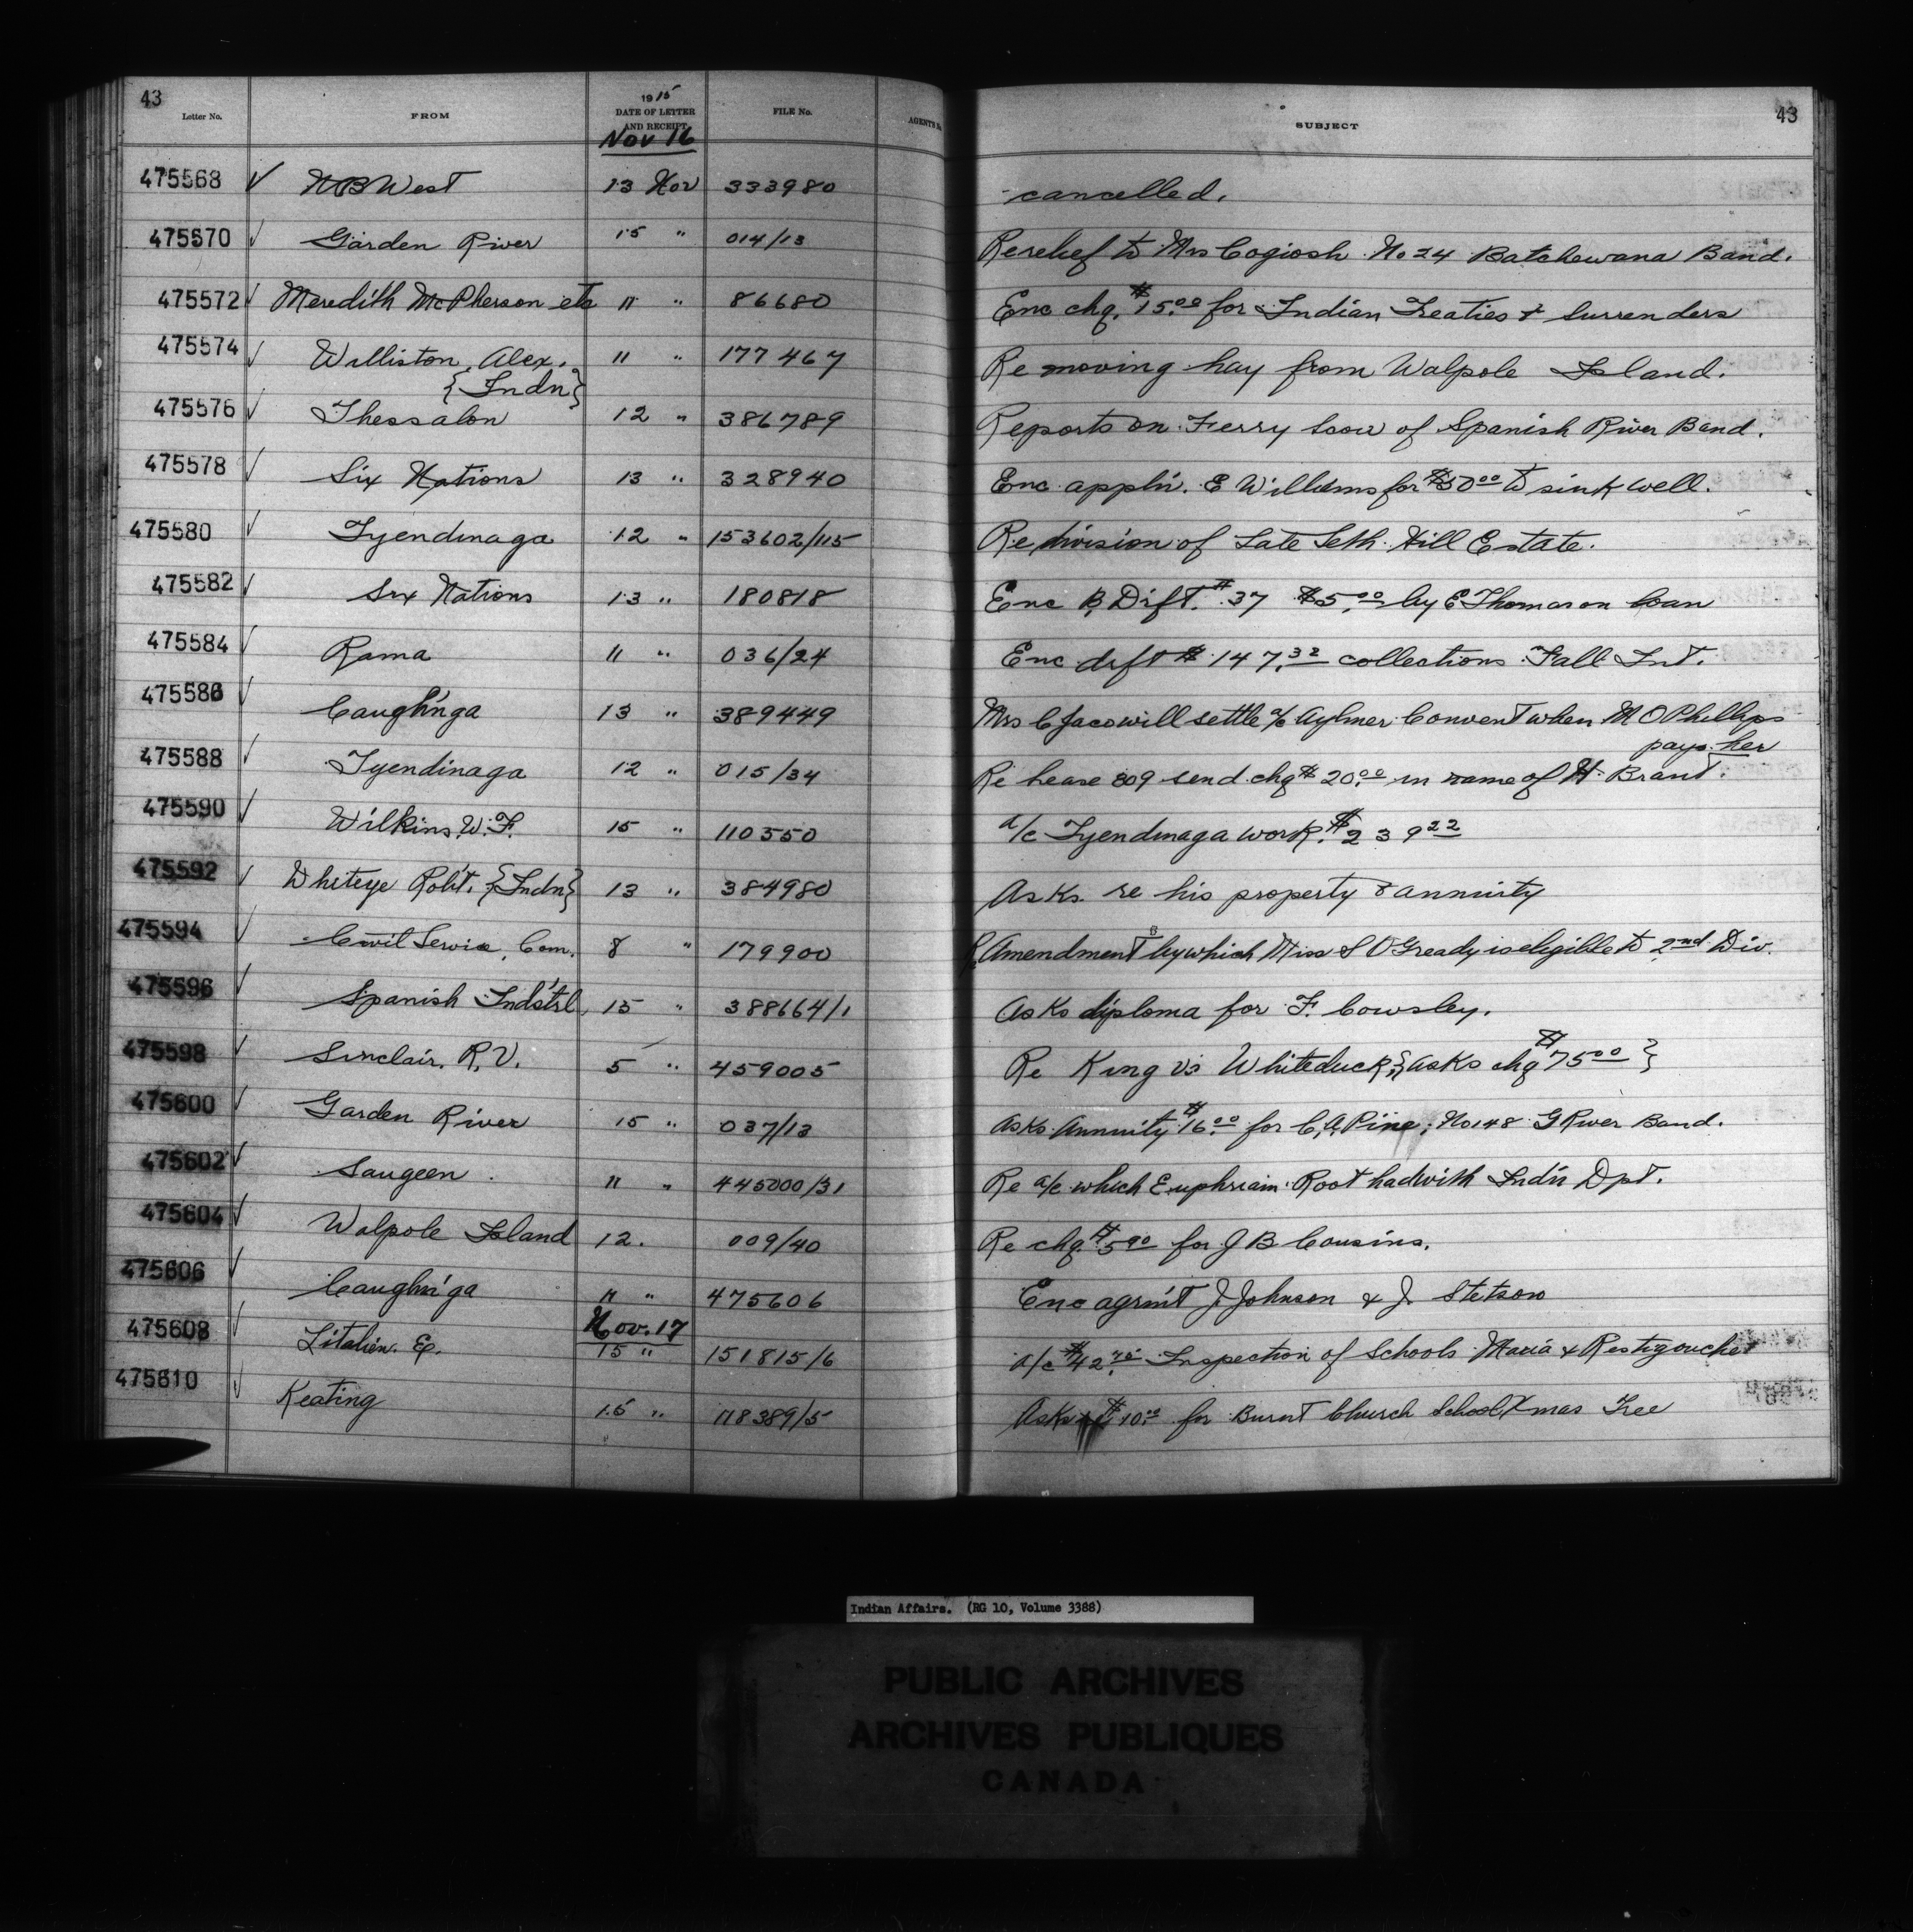 43
43
Letter No. FROM 1915 DATE OF LETTER AND RECEIPT FILE No. AGENT'S No. SUBJECT
Nov 16
475568 ✓ N B West 13 Nov 333980 cancelled.
475570 ✓ Garden River 15 " 014/13 Re relief to Mrs Cogiosh No 24 Batchewana Band.
475572 ✓ Meredith McPherson etc 11 " 86680 Enc chq. $15.00 for Indian Treaties & Surrenders
475574 ✓ Williston, Alex. 11 " 177467 Re moving hay from Walpole Island.
{Indn}
475576 ✓ Thessalon 12 " 386789 Reports on Ferry Scow of Spanish River Band.
475578 ✓ Six Nations 13 " 328940 Enc appl'n. E Williams for $50.00 to sink well.
475580 ✓ Tyendinaga 12 " 153602/115 Re division of Late Seth Hill Estate.
475582 ✓ Six Nations 13 " 180818 Enc B, Drft. #37 $5.00 by E Thomas on loan
475584 ✓ Rama 11 " 036/24 Enc drft $147.32 collections Fall Int.
475586 ✓ Caughn'ga 13 " 389449 Mrs C Jacos will settle a/c Aylmer Convent when M O Phillips
pays her
475588 ✓ Tyendinaga 12 " 015/34 Re lease 809 send chq $20.00 in name of H. Brant.
475590 ✓ Wilkins, W. F. 15 " 110550 a/c Tyendinaga work. $239.22
475592 ✓ Whiteye Rob't. {Indn} 13 " 384980 Asks re his property & annuity
475594 ✓ Civil Service, Com. 8 " 179900 Re Amendment by which Miss S O'Gready is eligible to 2nd Div.
475596 ✓ Spanish Ind'strl 15 " 388664/1 Asks diploma for F. Cowsley.
475598 ✓ Sinclair, R. V. 5 " 459005 Re King vs Whiteduck, {asks chq $75.00}
475600 ✓ Garden River 15 " 037/13 Asks Annuity $16.00 for C, A, Pine, No 148 G River Band.
475602 ✓ Saugeen 11 " 445000/31 Re a/c which Euphriam Root had with Ind'n Dpt.
475604 ✓ Walpole Island 12. 009/40 Re chq. $5.90 for J B Cousins.
475606 ✓ Caughn'ga 11 " 475606 Enc agrm't J. Johnson & J. Stetson
Nov. 17
475608 ✓ Litalien. Ep. 15 " 151815/6 a/c $42.75 Inspection of Schools Maria & Restigouche
475610 ✓ Keating 15 " 118389/5 Asks $10.00 for Burnt Church School Xmas Tree
Indian Affairs. (RG 10, Volume 3388)
PUBLIC ARCHIVES
ARCHIVES PUBLIQUES
CANADA